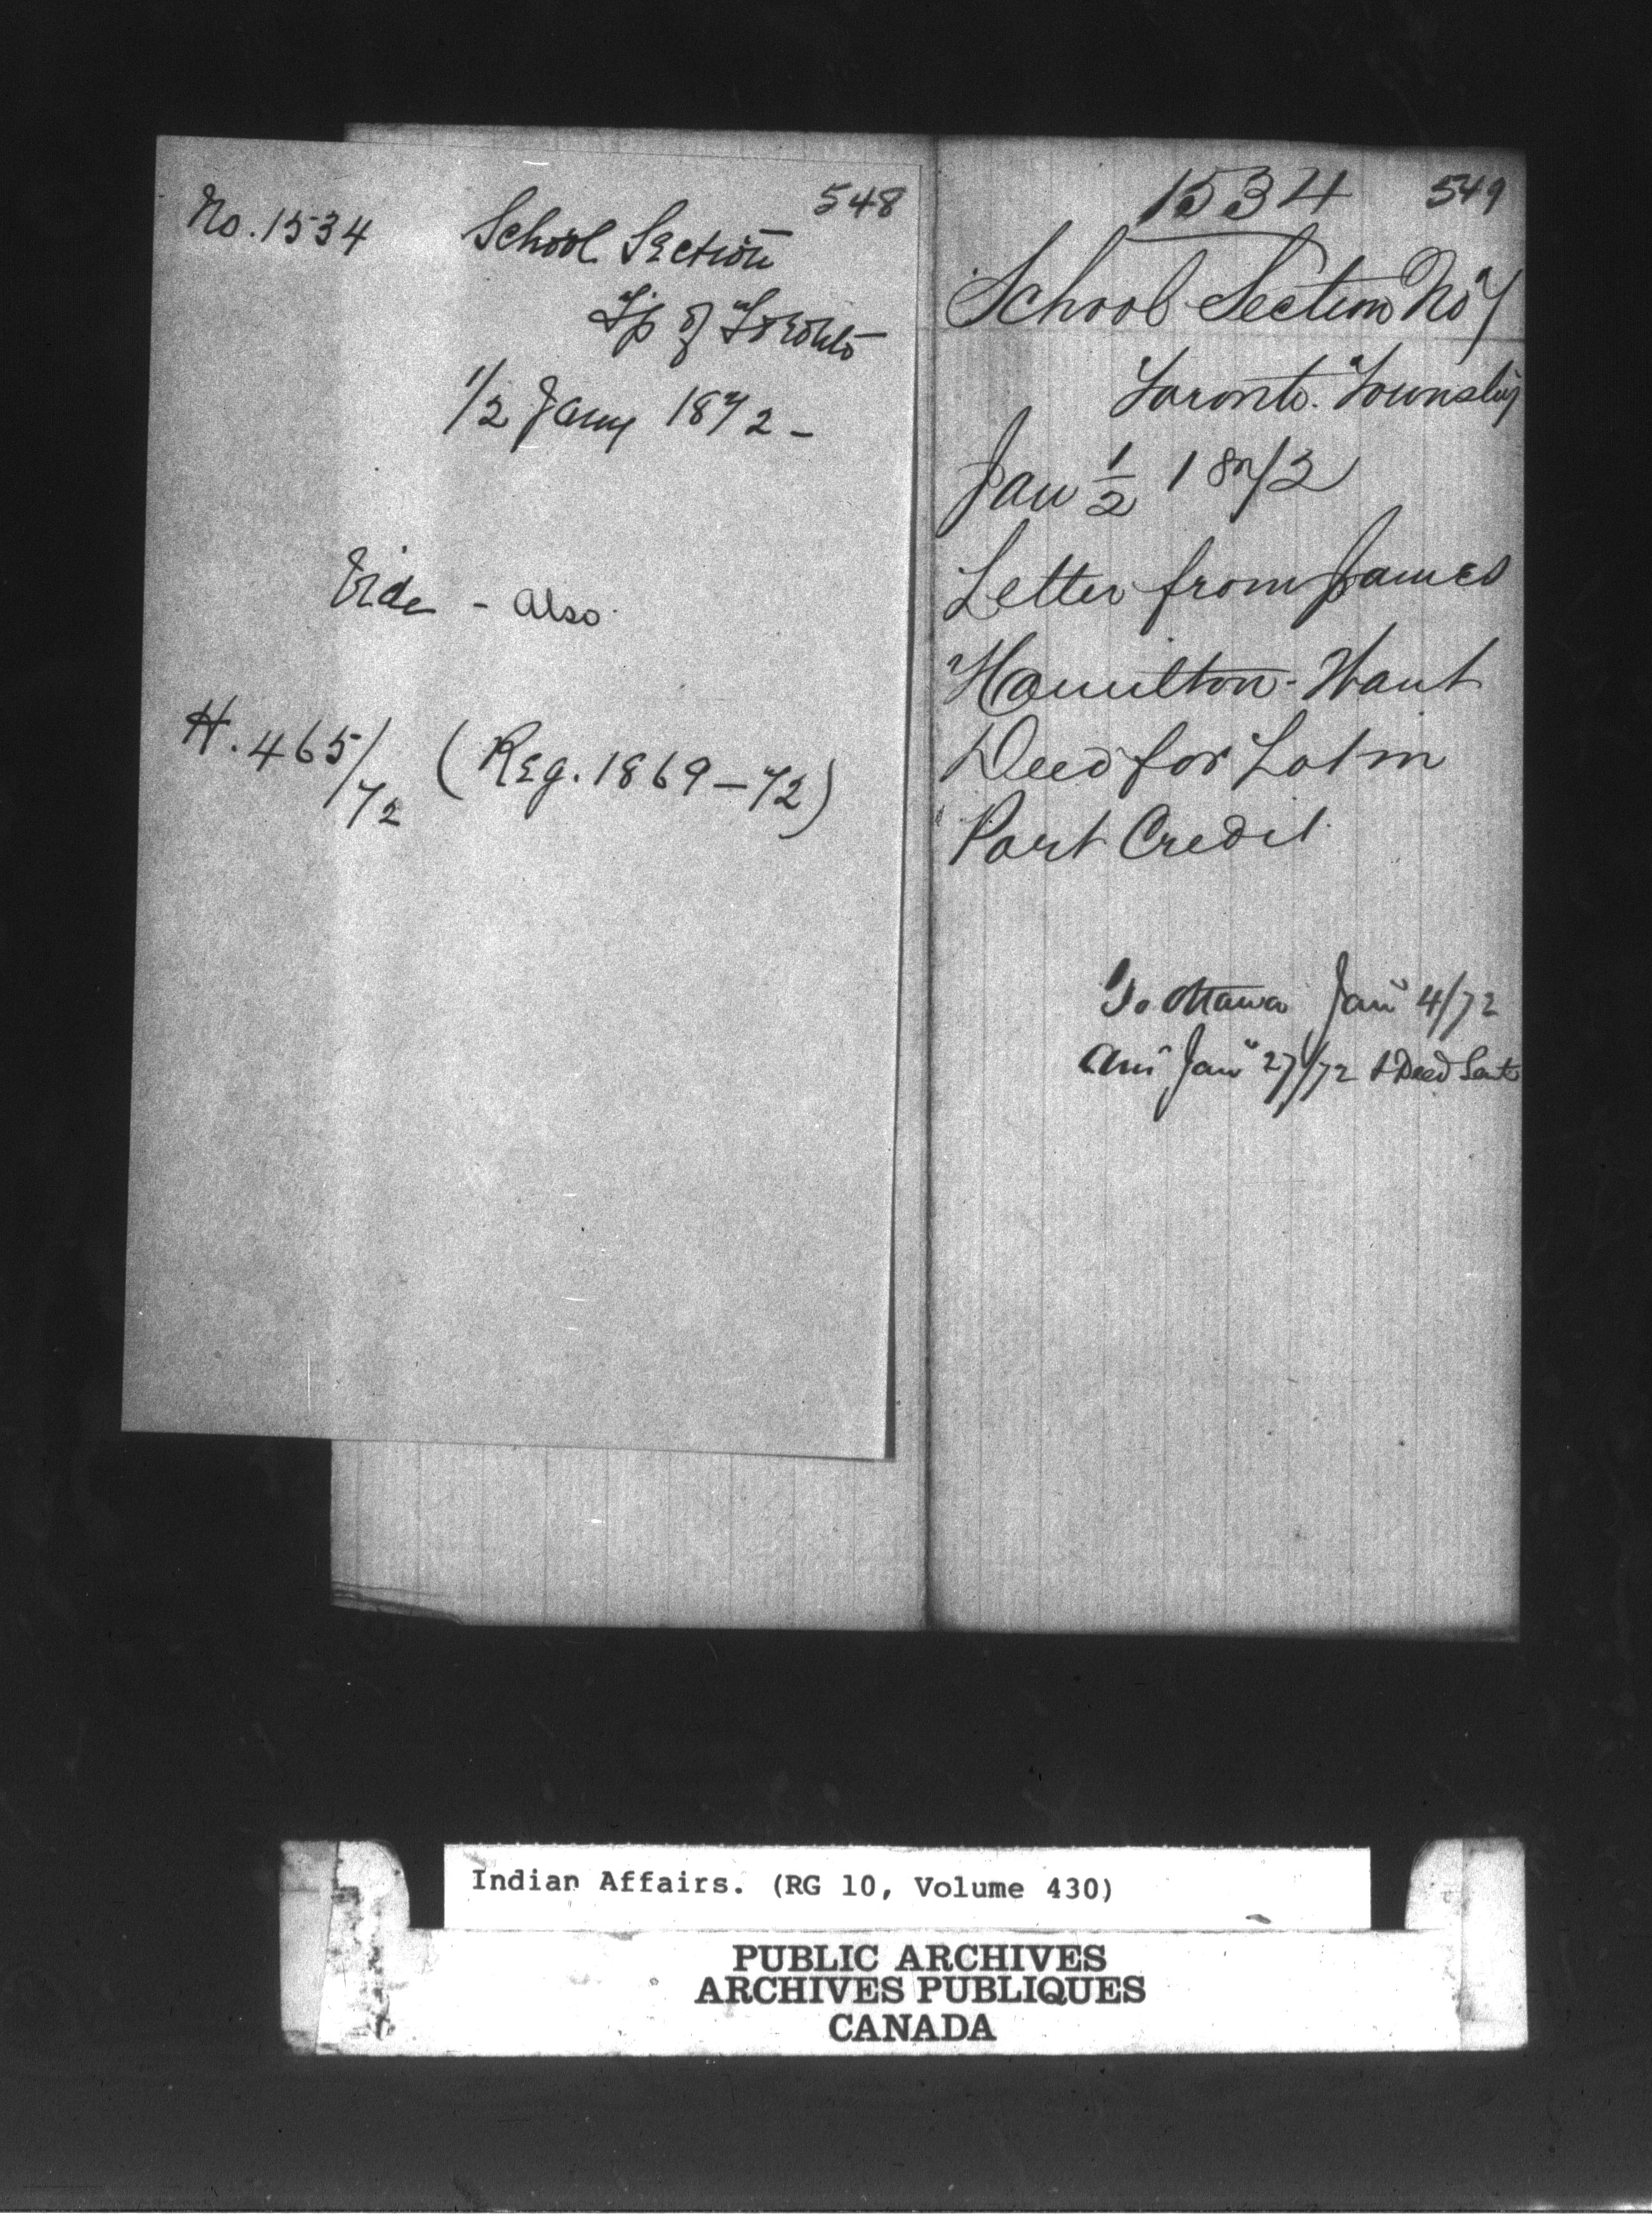 548
No. 1534 School Section
Tp of Toronto
1/2 Jany 1872 -
Vide - Also
H. 465/72 (Reg. 1869-72)
1534 549
School Section No 7
Toronto Township
Jan 1/2 1872
Letter from James
Hamilton - Want
Deed for Lot in
Port Credit
To Ottawa Jany 4/72
Ans Jany 27/72 & Deed Sent
Indian Affairs. (RG 10, Volume 430)
PUBLIC ARCHIVES
ARCHIVES PUBLIQUES
CANADA